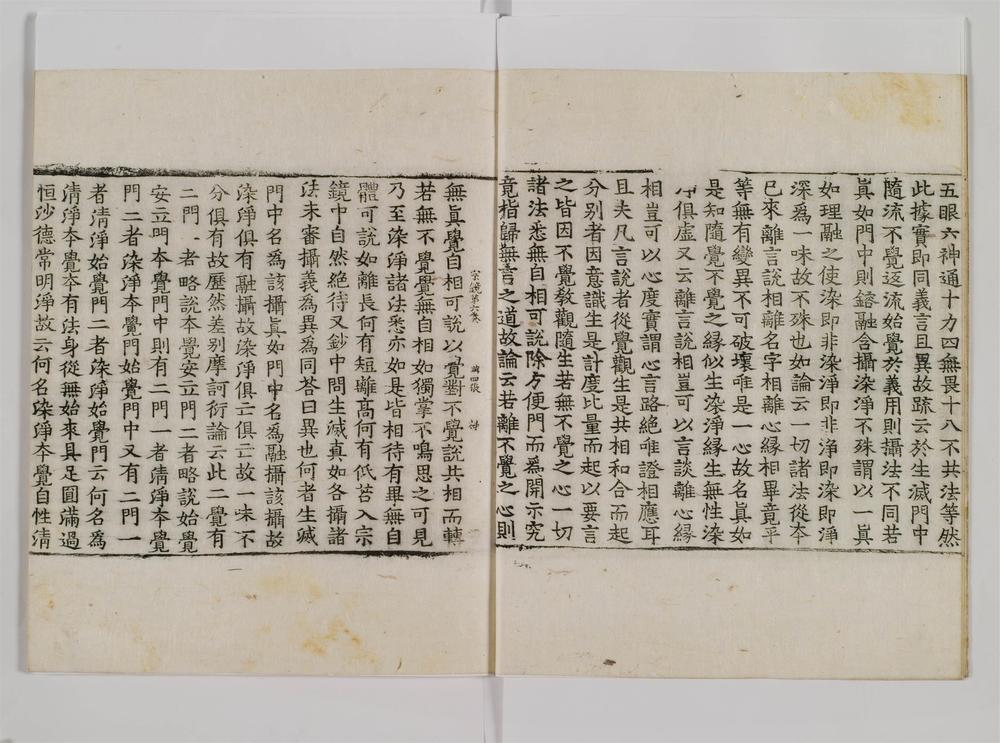 五眼六神通十力四無畏十八不共法等然
此據實即同義言且異故疏云於生滅門中
隨流不覺逆流始覺於義用則攝法不同若
眞如門中則鎔融含攝染淨不殊謂以一眞
如理融之使染即非染淨即非淨即染即淨
深爲一味故不殊也如論云一切諸法從本
已來離言說相離名字相離心緣相畢竟平
等無有變異不可破壞唯是一心故名眞如
是知隨覺不覺之緣似生染淨緣生無性染
俱虛又云離言說相豈可以言談離心緣
相豈可以心度實謂心言路絕唯證相應耳
且夫凡言說者從覺觀生是共相和合而起
分別者因意識生是計度比量而起以要言
之皆因不覺敎觀隨生若無不覺之心一切
諸法悉無自相可說除方便門而爲開示究
竟指歸無言之道故論云若離不覺之心則
宗鏡第六卷 第四張 神
無眞覺自相可說以覺對不覺說共相而轉
若無不覺覺無自相如獨掌不鳴思之可見
乃至染淨諸法悉亦如是皆相待有畢無自
體可說如離長何有短離髙何有低若入宗
鏡中自然絶待又鈔中問生滅真如各攝諸
法未審攝義爲異爲同答曰異也何者生滅
門中名爲該攝眞如門中名爲融攝該攝故
染淨俱有融攝故染淨俱亡俱亡故一味不
分俱有故歷然差别摩訶衍論云此二覺有
二門 者略說本覺安立門二者略說始覺
安立門本覺門中則有二門一者清淨本覺
門二者染淨本覺門始覺門中又有二門一
者清淨始覺門二者染淨始覺門云何名爲
清淨本覺本有法身從無始來具足圓滿過
恒沙德常明淨故云何名染淨本覺自性清